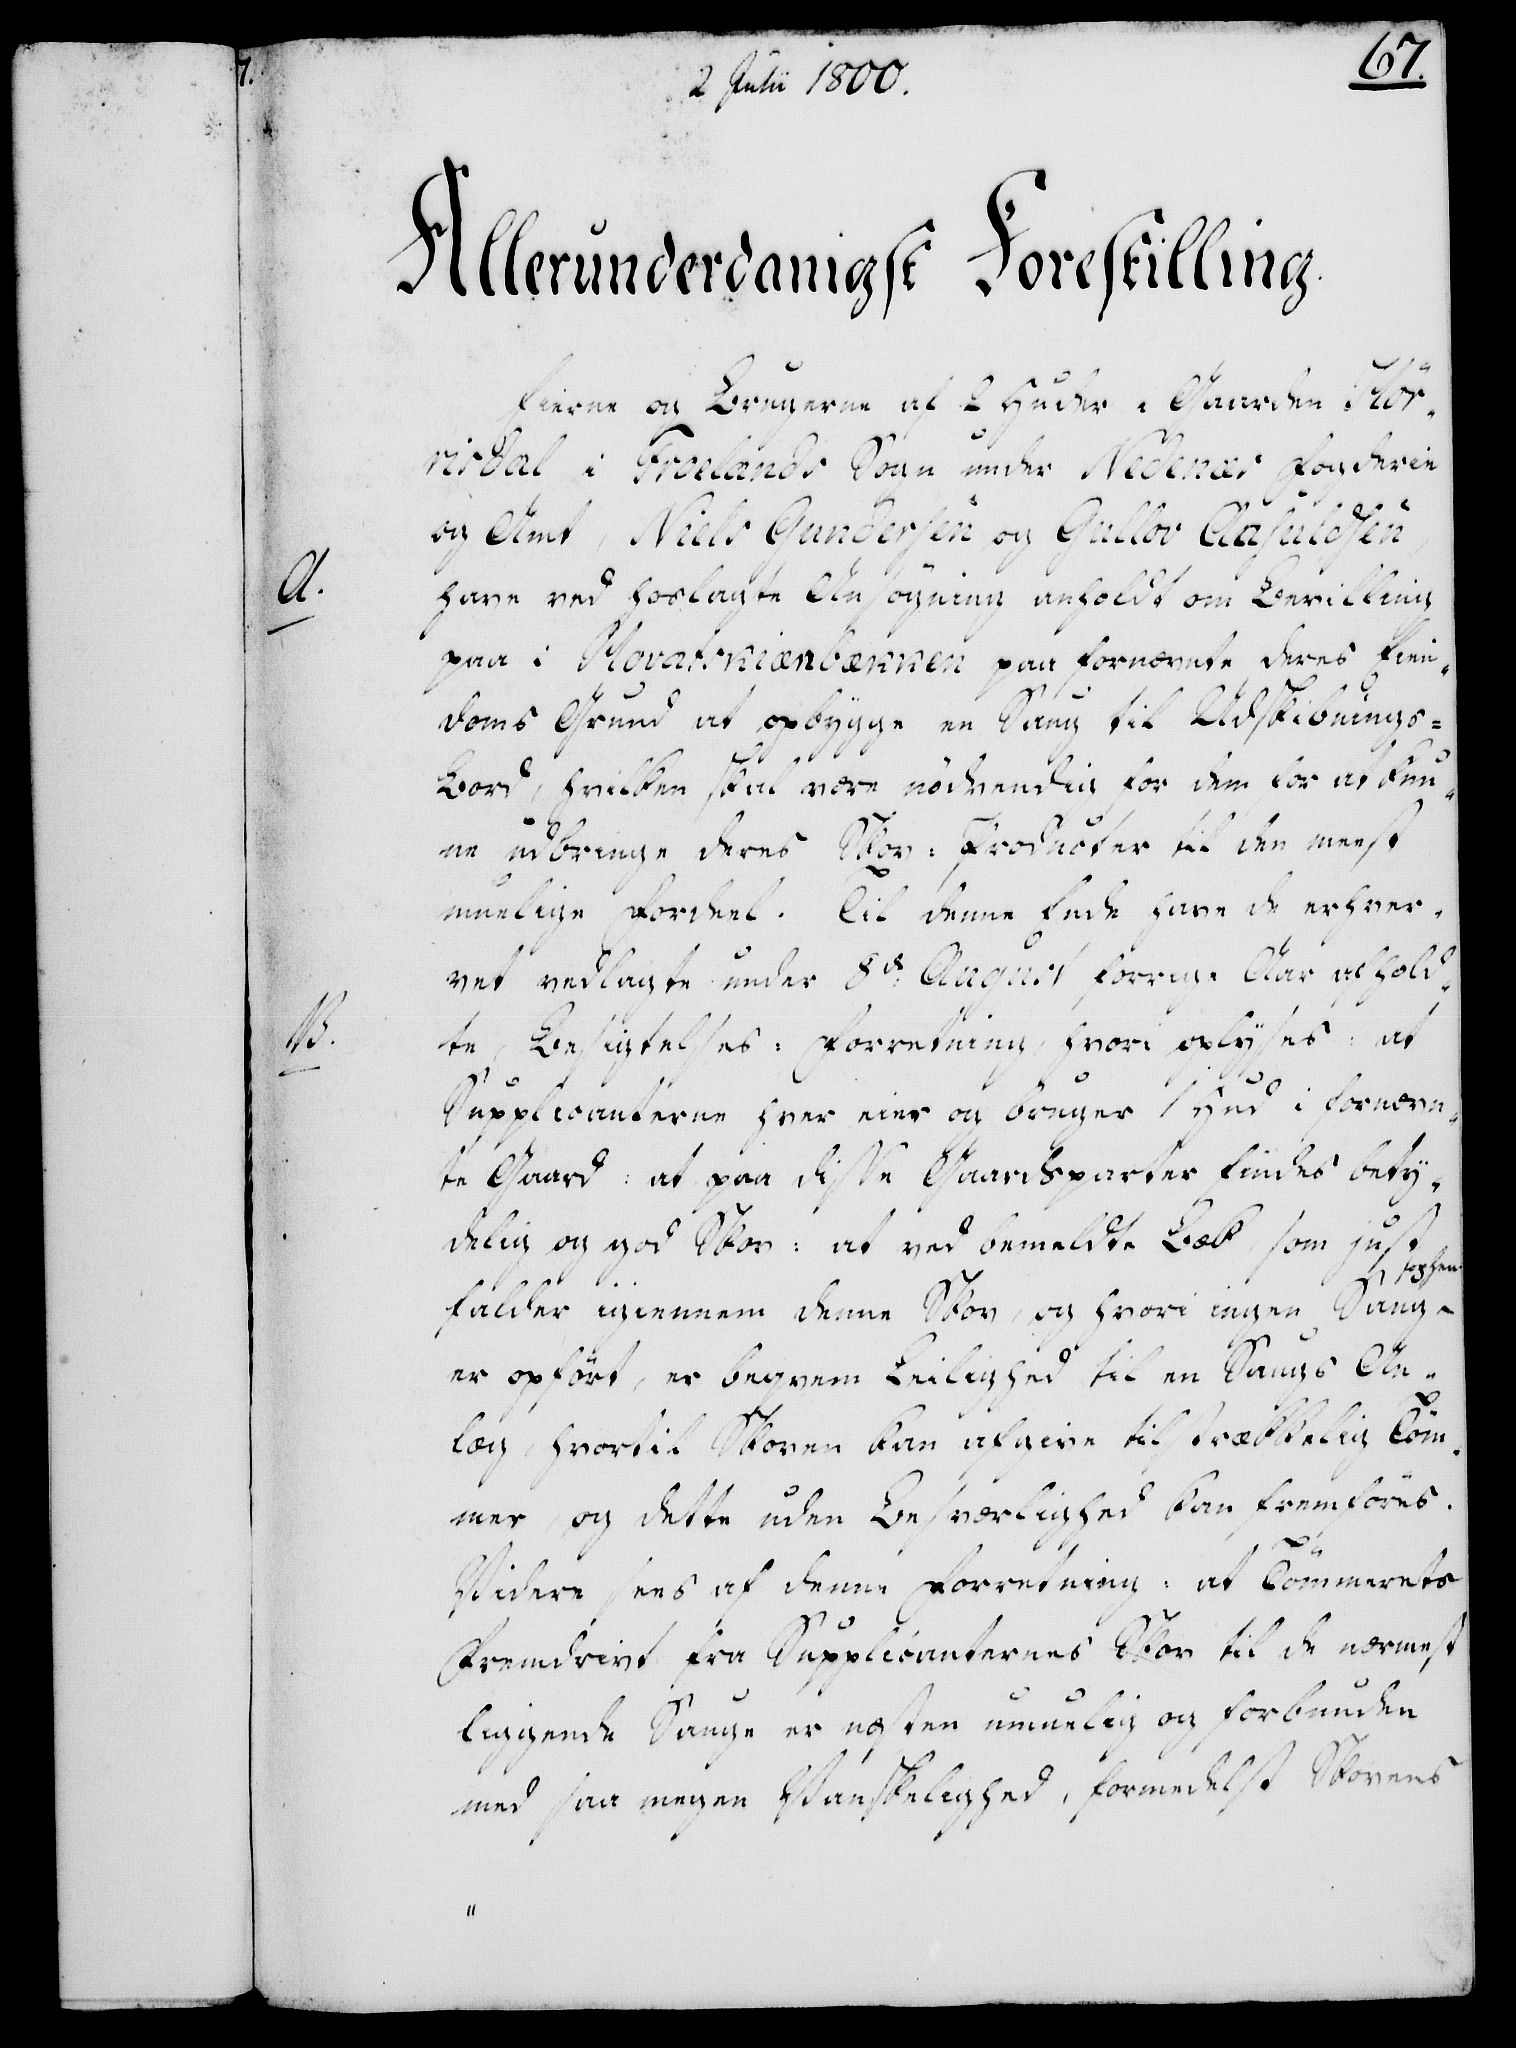 67.
2 Julii 1800.
Allerunderdanigst Forestilling.
Eierne og Brugerne af 2 Huder i Gaarden Mör¬
risdal i Froelands Sogn under Nedenæs Fogderie
og Amt, Niels Gundersen og Gullov Aasuldsen,
A.
have ved hoslagte Ansøgning anholdt om Bevilling
paa i Hovatskiænbækken paa fornævnte deres Eien¬
doms Grund at opbygge en Saug til Udskibnings=
Bord, hvilken skal være nödvendig for dem for at kun¬
ne udbringe deres Skov=Producter til den meest
muelige Fordeel. Til denne Ende have de erhver¬
vet vedlagte under 8de August forrige Aar afhold¬
B.
te Besigtelses=Forretning, hvori oplyses: at
Supplicanterne hver eier og bruger 1 Hud i fornævn¬
te Gaard: at paa disse Gaardsparter findes bety¬
delig og god Skov: at ved bemeldte Bæk, som just
falder igiennem denne Skov, og hvori ingen Saug
er opført, er beqvem Leilighed til en Saugs An¬
læg, hvortil Skoven kan afgive tilstrækkelig Töm¬
mer, og dette uden Besværlighed kan fremföres.
Videre sees af denne Forretning: at Tömmerets
Fremdrivt fra Supplicanternes Skov til de nærmest
liggende Sauge er næsten umuelig og forbunden
med saa megen Vanskelighed, formedelst Skovens
"